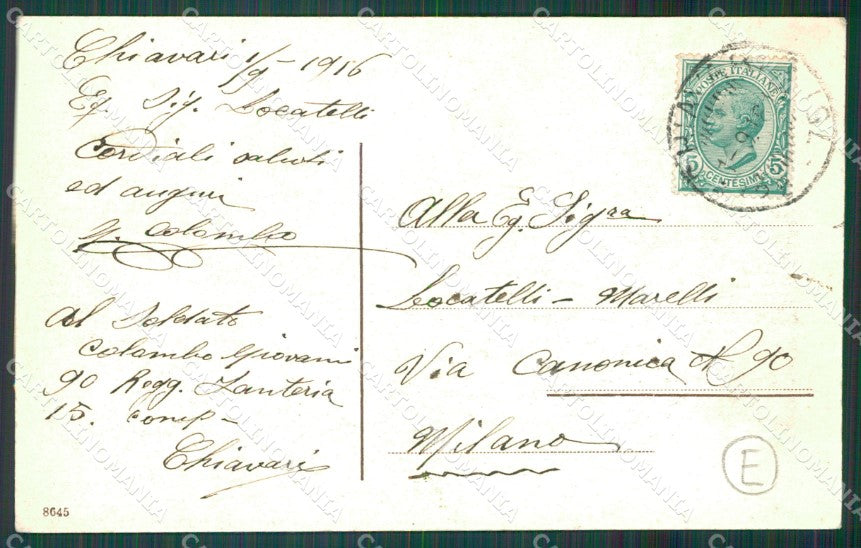 Chiavari 1/9 - 1916
Eg. Sig. Locatelli
Cordiali saluti
ed auguri
G. Colombo
Al Soldato
Colombo Giovanni
90 Regg. Fanteria
15. Comp -
Chiavari
8645
POSTE ITALIANE
5 CENTESIMI 5
Alla Eg. Sigra
Locatelli - Marelli
Via Canonica N 90
Milano
E
CARTOLINOMANIA